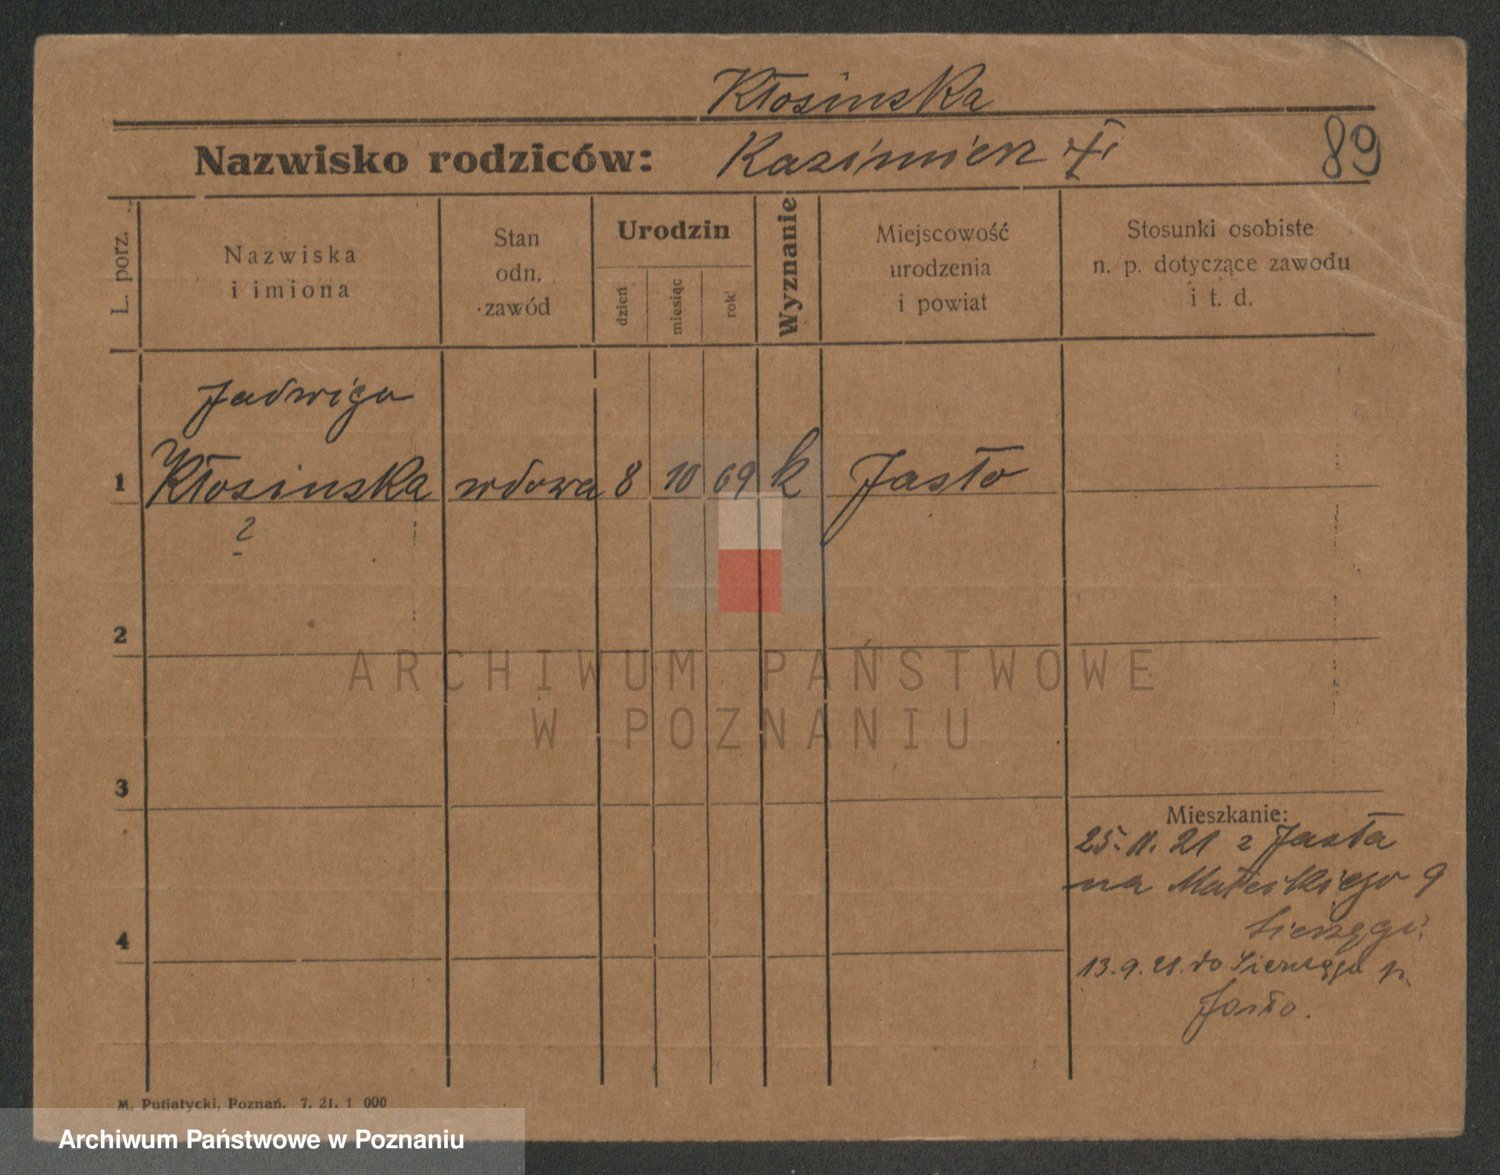 Kłosinska
Nazwisko rodziców: Kazimierz
89
L. porz.
Nazwiska
i imiona
Stan
odn.
zawód
Urodzin
dzień
miesiąc
rok
Wyznanie
Miejscowość
urodzenia
i powiat
Stosunki osobiste
n. p. dotyczące zawodu
i t. d.
Jadwiga
1 Kłosinska wdowa 8 10 69 k Jasło
2
2
ARCHIWUM PAŃSTWOWE
W POZNANIU
3
Mieszkanie:
25. 11. 21 z Jasła
na Matejkiego 9
4
13. 9. 21. do p.
Jasło.
M. Putiatycki, Poznań. 7. 21. 1 000
Archiwum Państwowe w Poznaniu